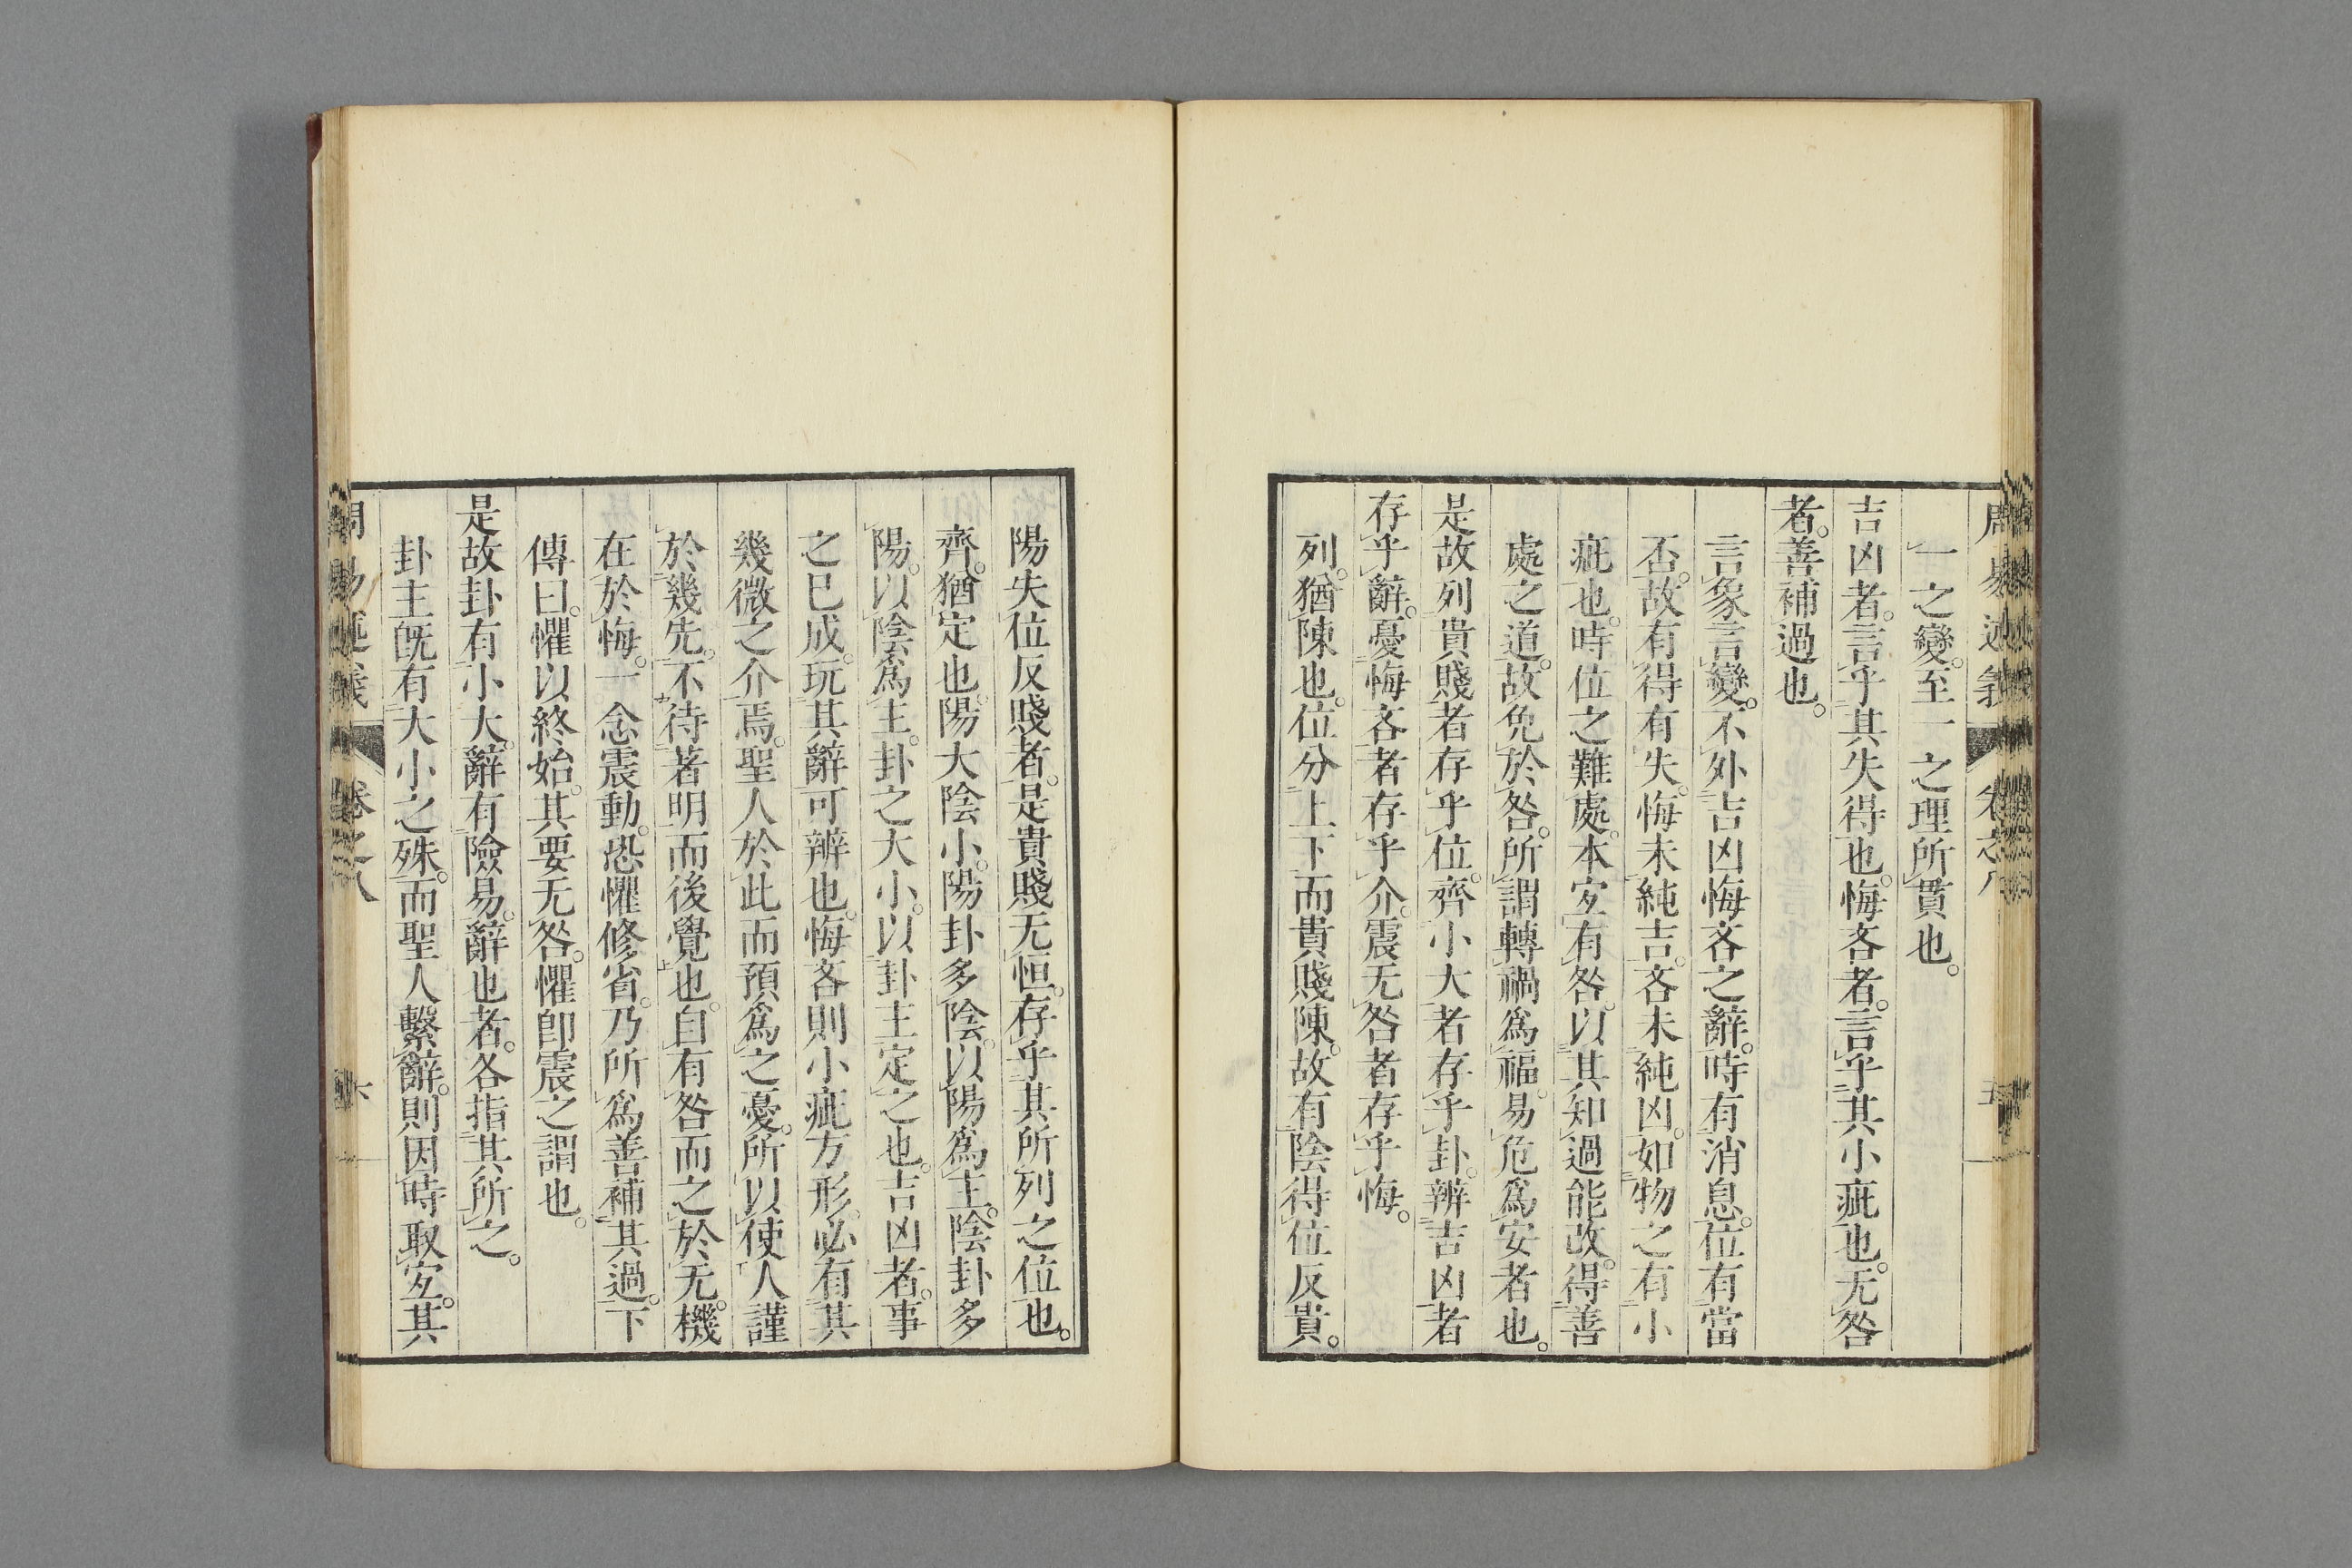 周易述義 卷之八 五
一之變。至一之理所貫也。
吉凶者。言乎其失得也。悔吝者。言乎其小疵也。无咎
者。善補過也。
言象言變。不外吉凶悔吝之辭。時有消息。位有當
否。故有得有失。悔未純吉。吝未純凶。如物之有小
疵也。時位之難處。本宐有咎。以其知過能改。得善
處之道。故免於咎。所謂轉禍爲福。易危爲安者也。
是故列貴賤者存乎位。齊小大者存乎卦。辨吉凶者
存乎辭。憂悔吝者存乎介。震无咎者存乎悔。
列。猶陳也。位分上下而貴賤陳。故有陰得位反貴。
陽失位反賤者。是貴賤无恒。存乎其所列之位也。
齊。猶定也。陽大陰小。陽卦多陰。以陽爲主。陰卦多
陽。以陰爲主。卦之大小。以卦主定之也。吉凶者。事
之已成。玩其辭可辨也。悔吝則小疵方形。必有其
幾微之介焉。聖人於此而預爲之憂。所以使人謹
於幾先。不待著明而後覺也。自有咎而之於无。機
在於悔。一念震動。恐懼修省。乃所爲善補其過。下
傳曰。懼以終始。其要无咎。懼卽震之謂也。
是故卦有小大。辭有險易。辭也者。各指其所之。
卦主旣有大小之殊。而聖人繫辭。則因時取宐。其
周易述義 卷之八 六